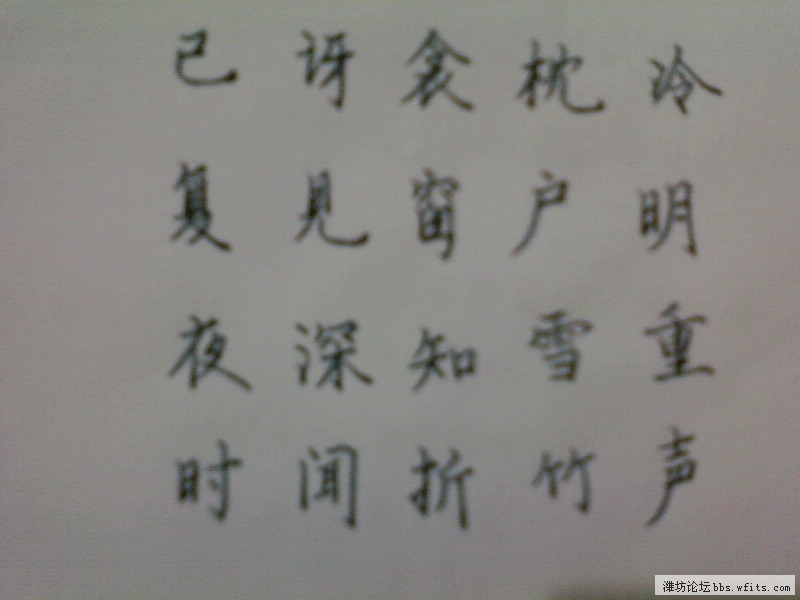 已讶衾枕冷
复见窗户明
夜深知雪重
时闻折竹声
潍坊论坛bbs.wfits.com